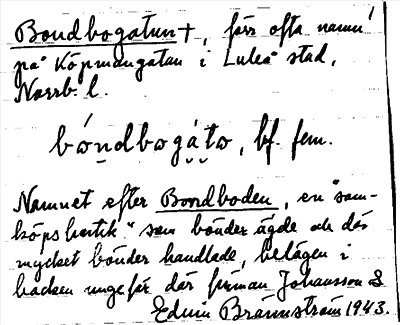 Bondbogatun +, förr ofta namn
på Köpmangatan i Luleå stad,
Norrb. l.
bóndbogàto, bf. fem.
Namnet efter Bondboden, en "sam-
köpsbutik" som bönder ägde och där
mycket bönder handlade, belägen i
backen ungefär där firman Johansson &
Edvin Brännström 1943.